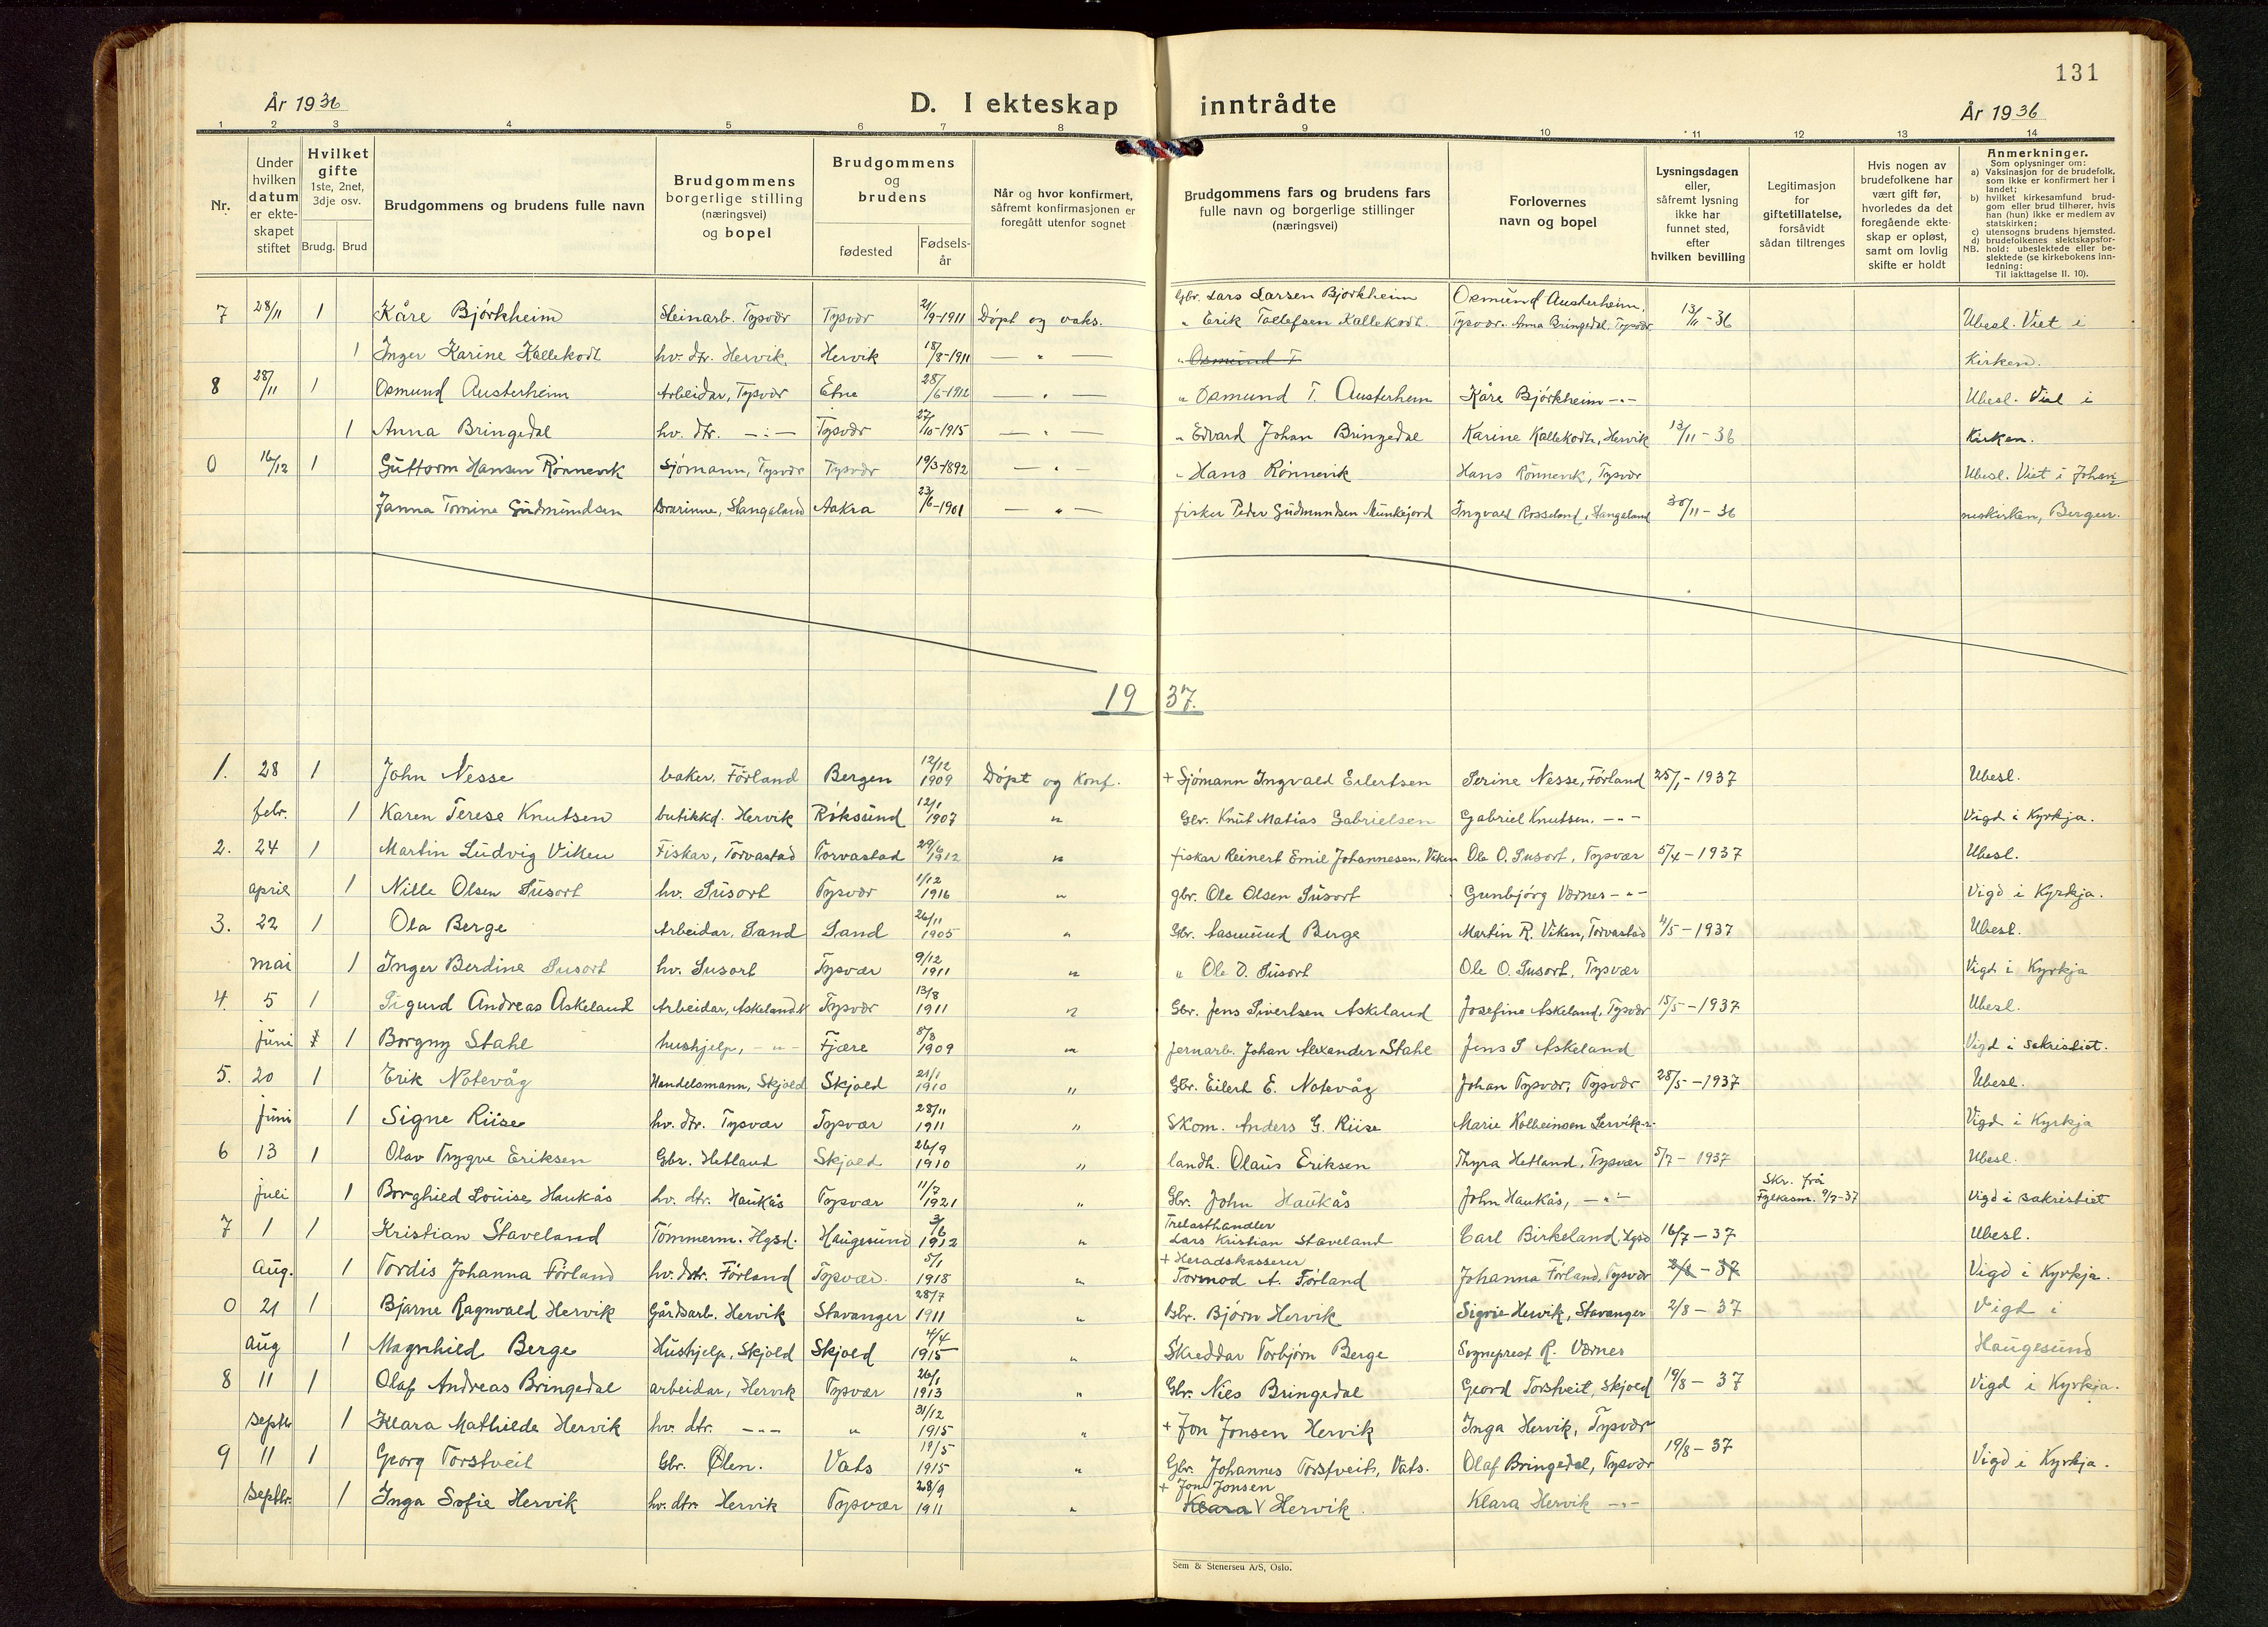 131
År 1936
D. I ekteskap inntrådte
År 1936
1 2 3 4 5 6 7 8 9 10 11 12 13 14
Nr.
Under hvilken datum er ekteskapet stiftet
Hvilket gifte 1ste, 2net, 3dje osv.
Brudg. Brud
Brudgommens og brudens fulle navn
Brudgommens borgerlige stilling (næringsvei) og bopel
Brudgommens og brudens
fødested
Fødselsår
Når og hvor konfirmert, såfremt konfirmasjonen er foregått utenfor sognet
Brudgommens fars og brudens fars fulle navn og borgerlige stillinger (næringsvei)
Forlovernes navn og bopel
Lysningsdagen eller, såfremt lysning ikke har funnet sted, efter hvilken bevilling
Legitimasjon for giftetillatelse, forsåvidt sådan tiltrenges
Hvis nogen av brudefolkene har vært gift før, hvorledes da det foregående ekteskap er opløst, samt om lovlig skifte er holdt
Anmerkninger.
Som oplysninger om:
a) Vaksinasjon for de brudefolk, som ikke er konfirmert her i landet;
b) hvilket kirkesamfund brudgom eller brud tilhører, hvis han (hun) ikke er medlem av statskirken;
c) utensogns brudens hjemsted.
d) brudefolkenes slektskapsforhold: ubeslektede eller beslektede (se kirkebokens innledning:
NB. Til iakttagelse II. 10).
7 28/11 1 Kåre Bjórkheim Steinarb. Tysvær Tysvær 21/9-1911 Döpt og vaks. Gbr. Lars Larsen Bjorkheim Osmund Austerheim, Tysvær. Anna Bringedal, Tysvær 13/11-36 Ubesl. Viet i
1 Inger Karine Kallekodt hv. dtr. Hervik Hervik 18/8-1911 — " — " Erik Tollefsen Kallekodt. Kirken.
" Osmund T
8 28/11 1 Osmund Austerheim Arbeidar, Tysvær Etne 28/6-1912 — " — " Osmund T. Austerheim Kåre Bjórkheim -"- Ubesl. Viet i
1 Anna Bringedal hv. dtr. —"— Tysvær 27/10-1915 — " — " Edvard Johan Bringedal Karine Kallekodt, Hervik 13/11-36 Kirken.
0 16/12 1 Guttorm Hansen Rönnevik Sjömann, Tysvær Tysvær 19/3-1892 — " — " Hans Rönnevik Hans Rönnevik, Tysvær Ubesl. Viet i Johan
Janna Tomine Gudmundsen Stangaland Aakra 23/6-1901 — " — fisker Peder Gudmundsen Munkejord Ingvald Stangaland 30/11-36 neskirken, Bergen.
1937.
1. 28 1 John Nesse baker. Förland Bergen 12/12 1909 Döpt og Konf. + Sjömann Ingvald Eilertsen Serine Nesse, Förland 25/1-1937 Ubesl.
febr. 1 Karen Terese Knutsen butikkd. Hervik Röksund 12/1 1907 " Gbr. Knut Matias Gabrielsen Gabriel Knutsen. -"- Vigd i Kyrkja.
2. 24 1 Martin Ludvig Viken Fiskar, Torvastad Torvastad 29/6 1912 " fiskar Reinert Emil Johannesen, Viken Ole O. Susort, Tysvær 5/4-1937 Ubesl.
april 1 Nille Olsen Susort hv. Susort Tysvær 1/12 1916 " gbr. Ole Olsen Susort Gunbjórg Værnes -"- Vigd i Kyrkja.
3. 22 1 Ola Berge Arbeidar, Sand Sand 26/11 1905 " Gbr. Aasmund Berge Martin R. Viken, Torvastad 4/5-1937 Ubesl.
mai 1 Inger Berdine Susort hv. Susort Tysvær 9/12 1911 " " Ole O. Susort Ole O. Susort, Tysvær Vigd i Kyrkja
4. 5 1 Sigurd Andreas Askeland Arbeidar, Askeland Tysvær 13/8 1911 " Gbr. Jens Sivertsen Askeland Josefine Askeland, Tysvær 15/5-1937 Ubesl.
juni 1 Borgny Stahl hushjelp, -"- Fjære 8/8 1909 " Jernarb. Johan Alexander Stahl Jens S Askeland Vigd i sakristiet.
5. 20 1 Erik Notevåg Handelsmann, Skjold Skjold 29/1 1910 " Gbr. Eilert E. Notevåg Johan Tysvær, Tysvær 28/5-1937 Ubesl.
juni 1 Signe Riise hv. dtr. Tysvær Tysvær 28/11 1911 " Skom. Anders G. Riise Marie Kolbeinsen Vigd i Kyrkja
6 13 1 Olav Trygve Eriksen Gbr. Hetland Skjold 26/9 1910 " landh. Olaus Eriksen Thyra Hetland, Tysvær 5/7-1937 Ubesl.
juli 1 Borghild Louise Haukås hv. dtr. Haukås Tysvær 11/7 1921 " Gbr. John Haukås John Haukås, -"- Skr. frå Fylkesm. 9/7-37 Vigd i sakristiet
7 1 1 Kristian Staveland Tömmerm. Hgsd. Haugesund 3/6 1912 " Trelasthandler Lars Kristian Staveland Carl Birkeland, Hgsd 16/7-37 Ubesl.
Aug. 1 Tordis Johanna Förland hv. dtr. Förland Tysvær. 5/1 1918 " + Heradskasserer Tormod A. Förland Johanna Förland, Tysvær 2/8-37 Vigd i Kyrkja.
0 21 1 Bjarne Ragnvald Hervik Gårdsarb. Hervik Stavanger 28/7 1911 " Gbr. Björn Hervik Hervik, Stavanger 2/8-37 Vigd i
Aug 1 Magnhild Berge Hushjelp, Skjold Skjold 4/4 1915 " Skreddar Torbjörn Berge Sogneprest R. Værnes Haugesund
8 11 1 Olaf Andreas Bringedal arbeidar, Hervik Tysvær 26/1 1913 " Gbr. Nils Bringedal Georg Torstveit, Skjold 19/8-37 Vigd i Kyrkja.
septbr 1 Klara Mathilde Hervik hv. dtr. -"- " 31/12 1915 " + Jon Jonsen Hervik Inga Hervik, Tysvær
9 11 1 Georg Torstveit Gbr. Ølen. Vats 19/5 1915 " Gbr. Johannes Torstveit, Vats. Olaf Bringedal, Tysvær 19/8-37 Vigd i Kyrkja.
septbr. 1 Inga Sofie Hervik hv. dtr Hervik Tysvær 28/9 1911 " + Jon Jonsen Klara Hervik. Klara Hervik -"-
Sem & Stenersen A/S, Oslo.